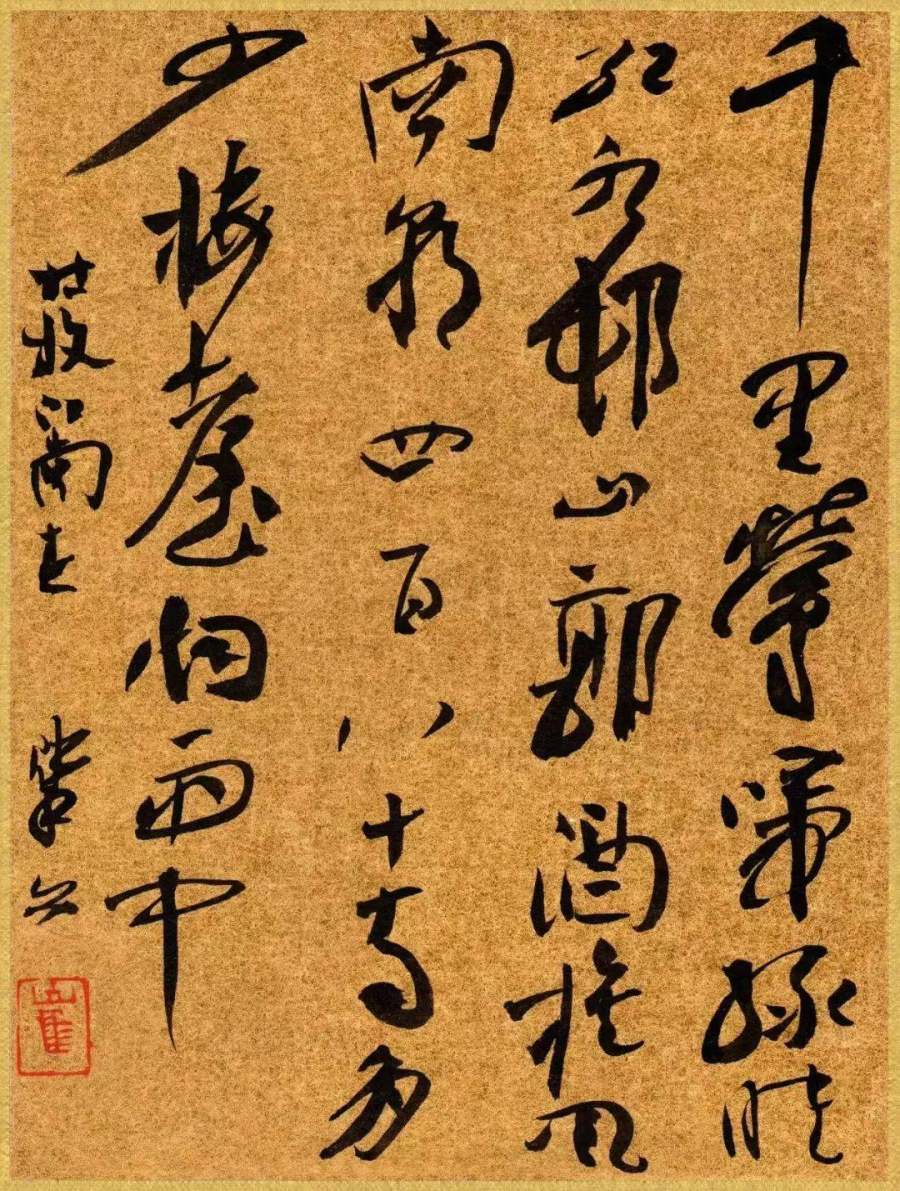 千里鶯啼綠映
紅水邨山郭酒旗風
南朝四百八十寺多
少樓臺烟雨中
杜牧江南春
崔